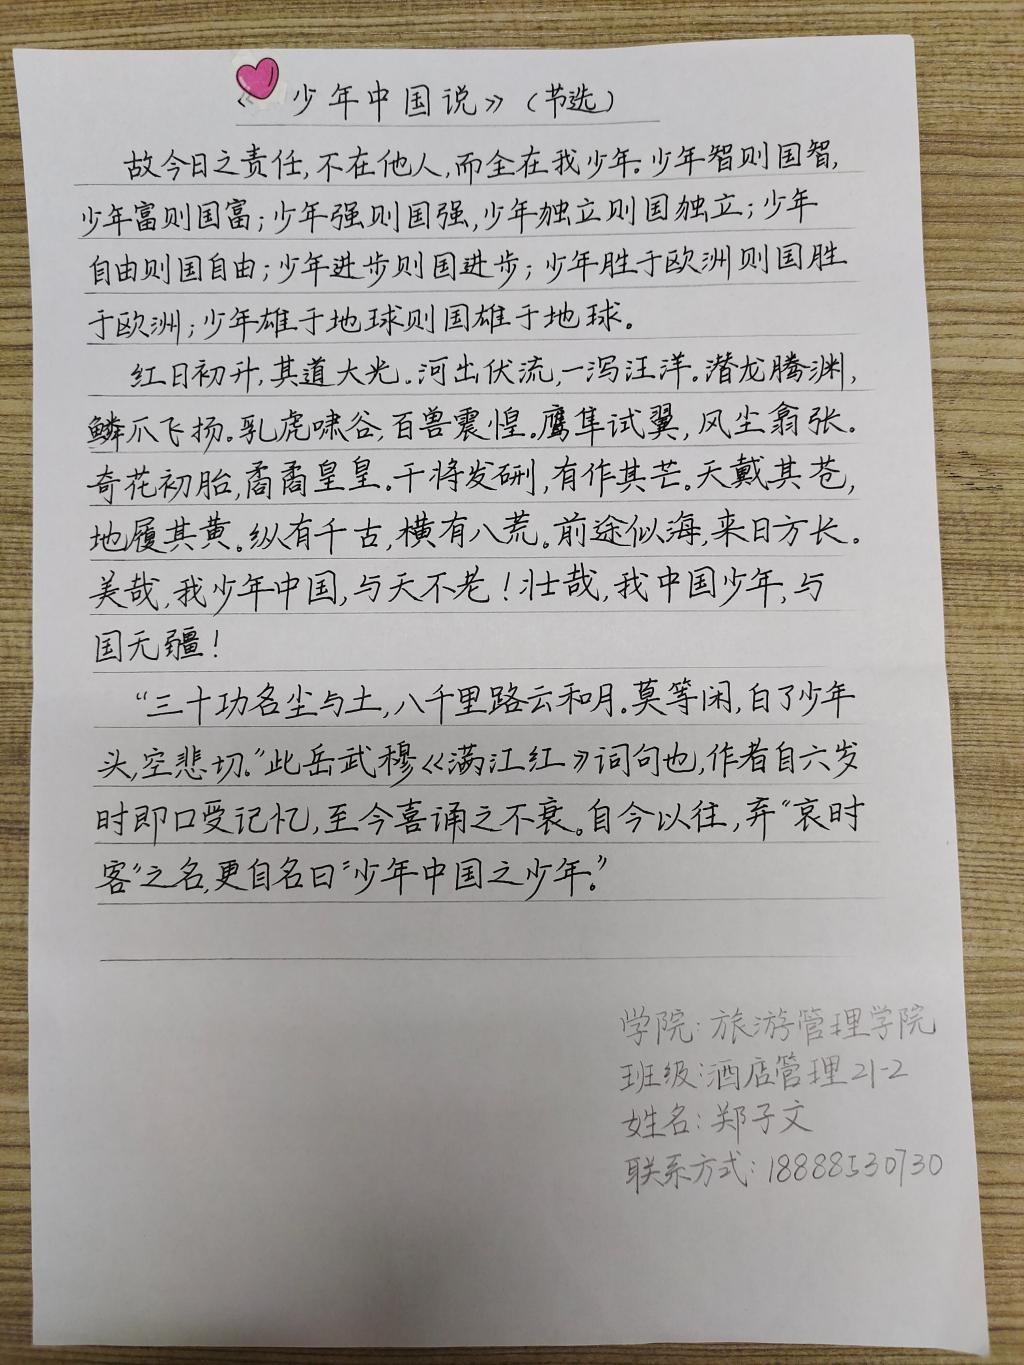 《少年中国说》(节选)
故今日之责任,不在他人,而全在我少年.少年智则国智,
少年富则国富;少年强则国强,少年独立则国独立;少年
自由则国自由;少年进步则国进步;少年胜于欧洲则国胜
于欧洲;少年雄于地球则国雄于地球。
红日初升,其道大光.河出伏流,一泻汪洋.潜龙腾渊,
鳞爪飞扬.乳虎啸谷,百兽震惶.鹰隼试翼,风尘翕张.
奇花初胎,矞矞皇皇.干将发硎,有作其芒.天戴其苍,
地履其黄.纵有千古,横有八荒.前途似海,来日方长.
美哉,我少年中国,与天不老!壮哉,我中国少年,与
国无疆!
“三十功名尘与土,八千里路云和月.莫等闲,白了少年
头,空悲切.”此岳武穆《满江红》词句也,作者自六岁
时即口受记忆,至今喜诵之不衰。自今以往,弃“哀时
客”之名,更自名曰“少年中国之少年.”
学院:旅游管理学院
班级:酒店管理21-2
姓名:郑子文
联系方式:18888530730